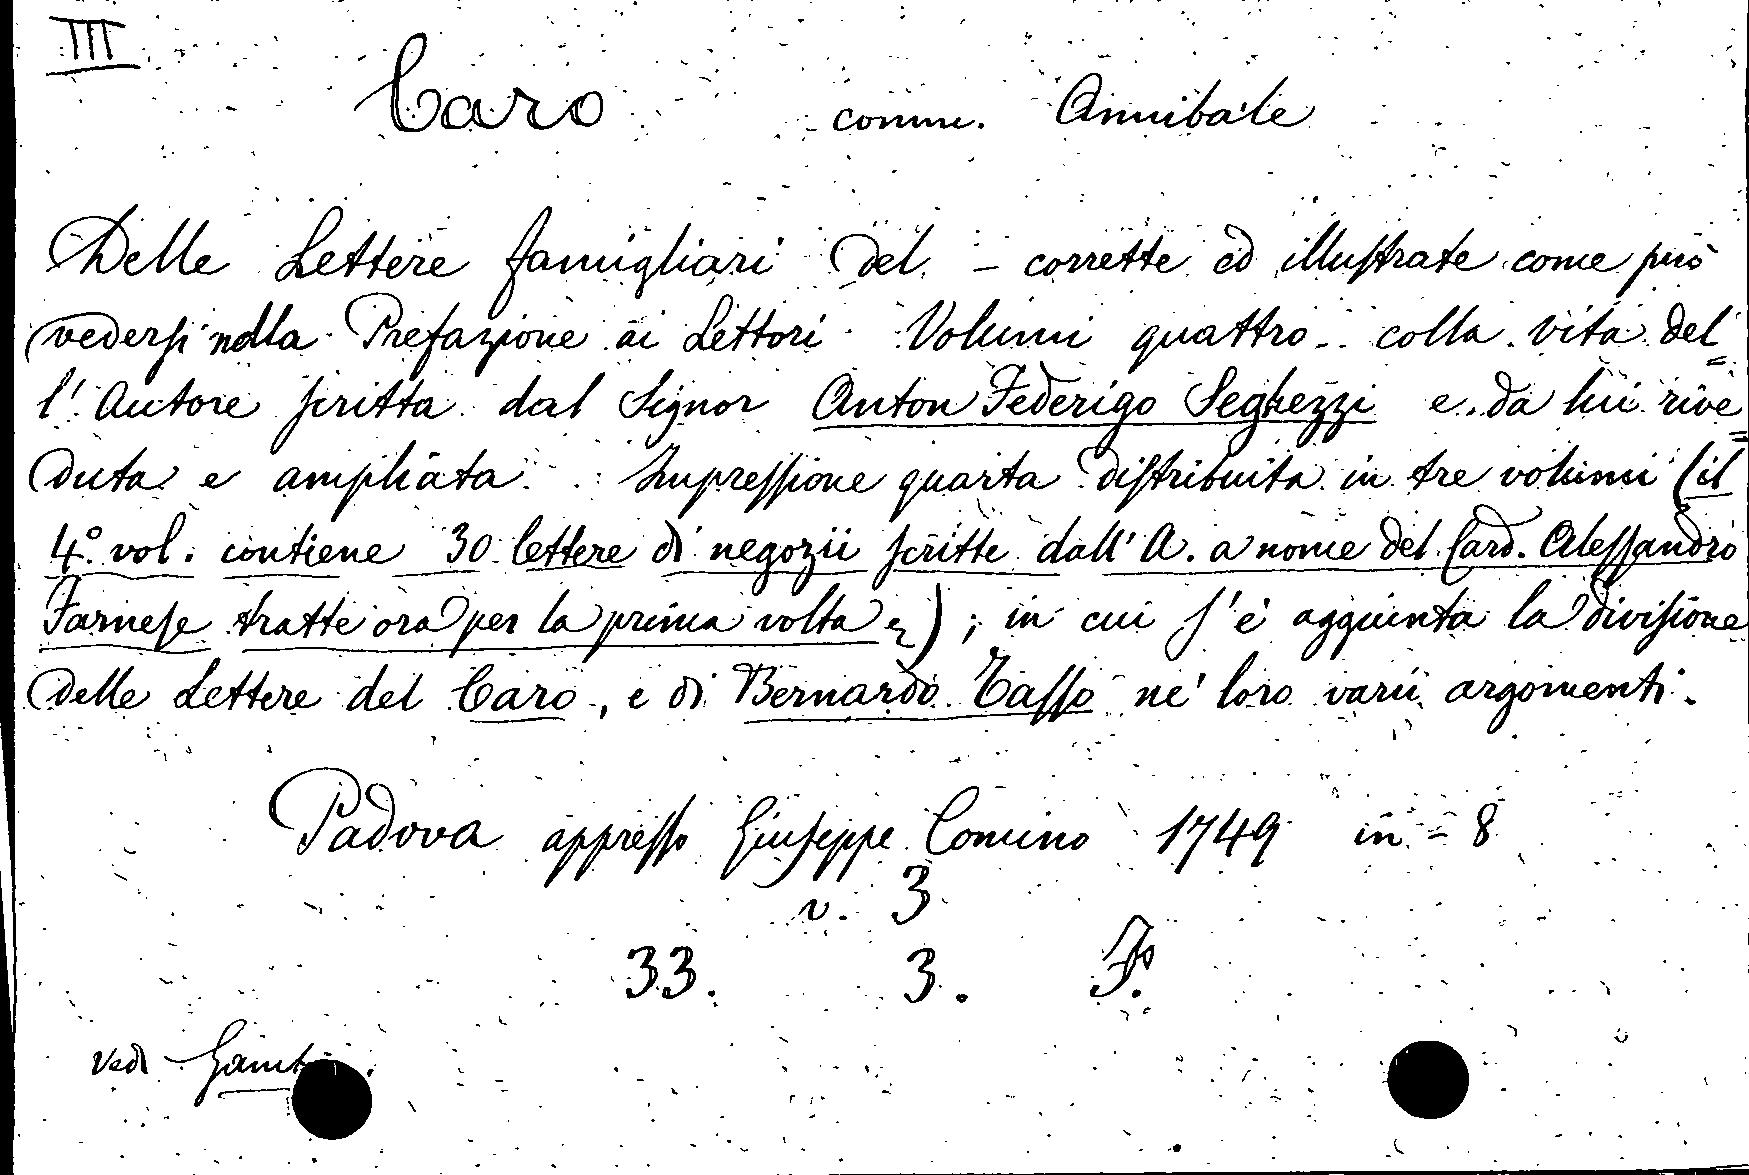 III
Caro comm. Annibale
Delle Lettere famigliari del - corrette ed illustrate come può
vedersi nella Prefazione ai Lettori Volumi quattro.. colla vita del=
l'Autore scritta dal Signor Anton Federigo Seghezzi e da lui rive=
duta e ampliata. Impressione quarta distribuita in tre volumi (il
4º vol. contiene 30 lettere di negozii scritte dall'A. a nome del Card. Alessandro
Farnese tratte ora per la prima volta); in cui s'è aggiunta la divisione
delle Lettere del Caro, e di Bernardo Tasso ne' loro varii argomenti.
Padova appresso Giuseppe Comino 1749 in = 8
v. 3
33. 3. F.
Vedi